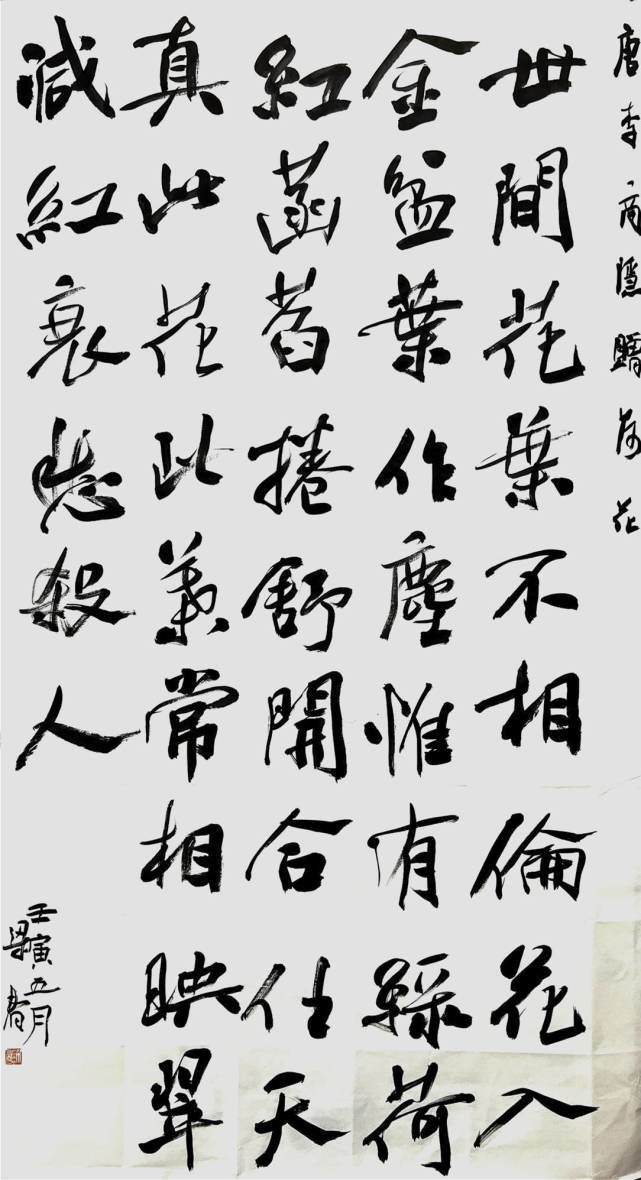 唐李商隱贈荷花
世間花葉不相倫花入
金盆葉作塵惟有綠荷
紅菡萏捲舒開合任天
真此花此葉常相映翠
減紅衰愁殺人
壬寅五月
梁